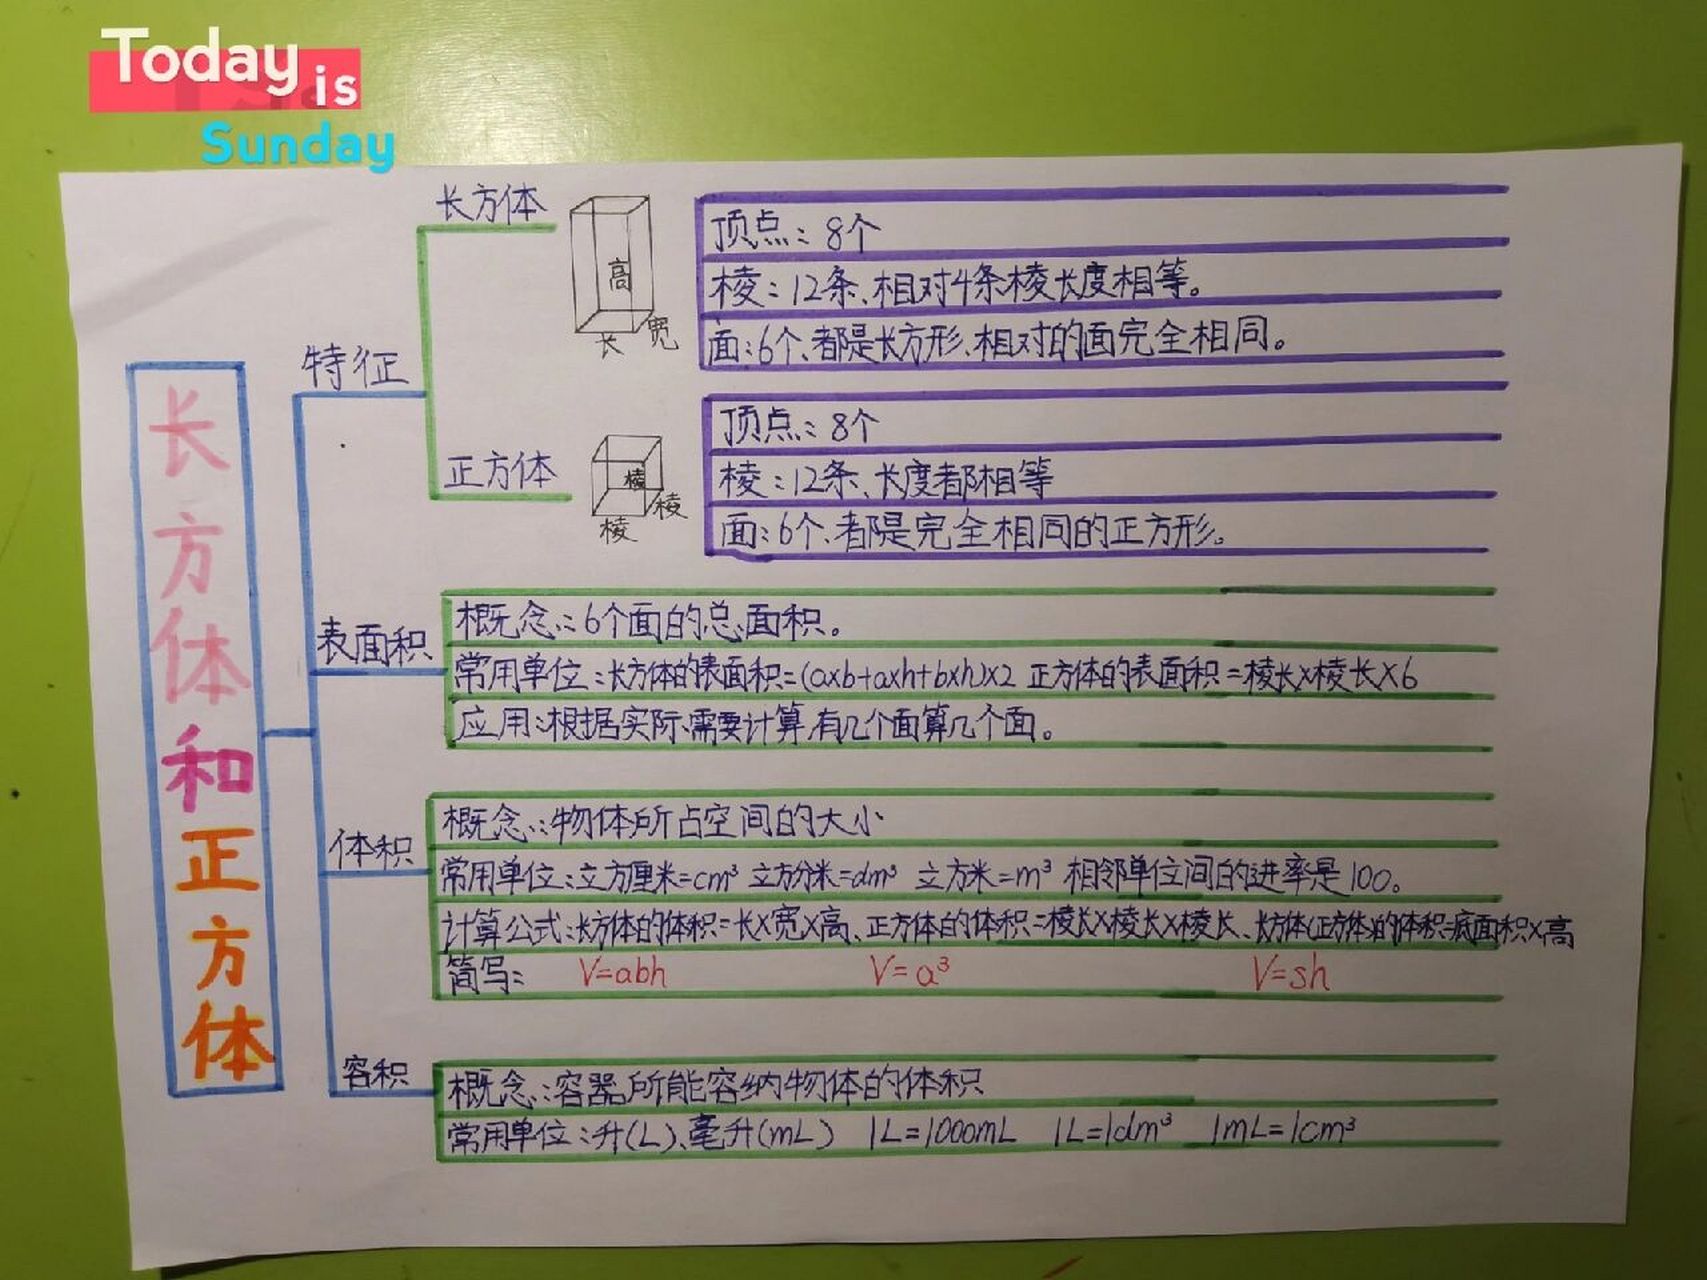 Today is
Sunday
长方体和正方体
特征
长方体
高
长
宽
顶点:8个
棱:12条、相对4条棱长度相等。
面:6个、都是长方形、相对的面完全相同。
正方体
棱
棱
棱
顶点:8个
棱:12条、长度都相等
面:6个、都是完全相同的正方形。
表面积
概念:6个面的总面积。
常用单位:长方体的表面积=(a×b+a×h+b×h)×2 正方体的表面积=棱长×棱长×6
应用:根据实际需要计算,有几个面算几个面。
体积
概念:物体所占空间的大小
常用单位:立方厘米=cm³ 立方分米=dm³ 立方米=m³ 相邻单位间的进率是100。
计算公式:长方体的体积=长×宽×高、正方体的体积=棱长×棱长×棱长、长方体(正方体)的体积=底面积×高
简写: V=abh V=a³ V=sh
容积
概念:容器所能容纳物体的体积
常用单位:升(L)、毫升(mL) 1L=1000mL 1L=1dm³ 1mL=1cm³